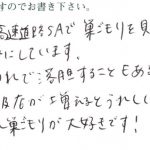 すのでお書き下さい。
高速道路SAで巣ごもりを見
にしています。
れで落胆することもあ
店が増えるとうれしい
巣ごもりが大好きです！